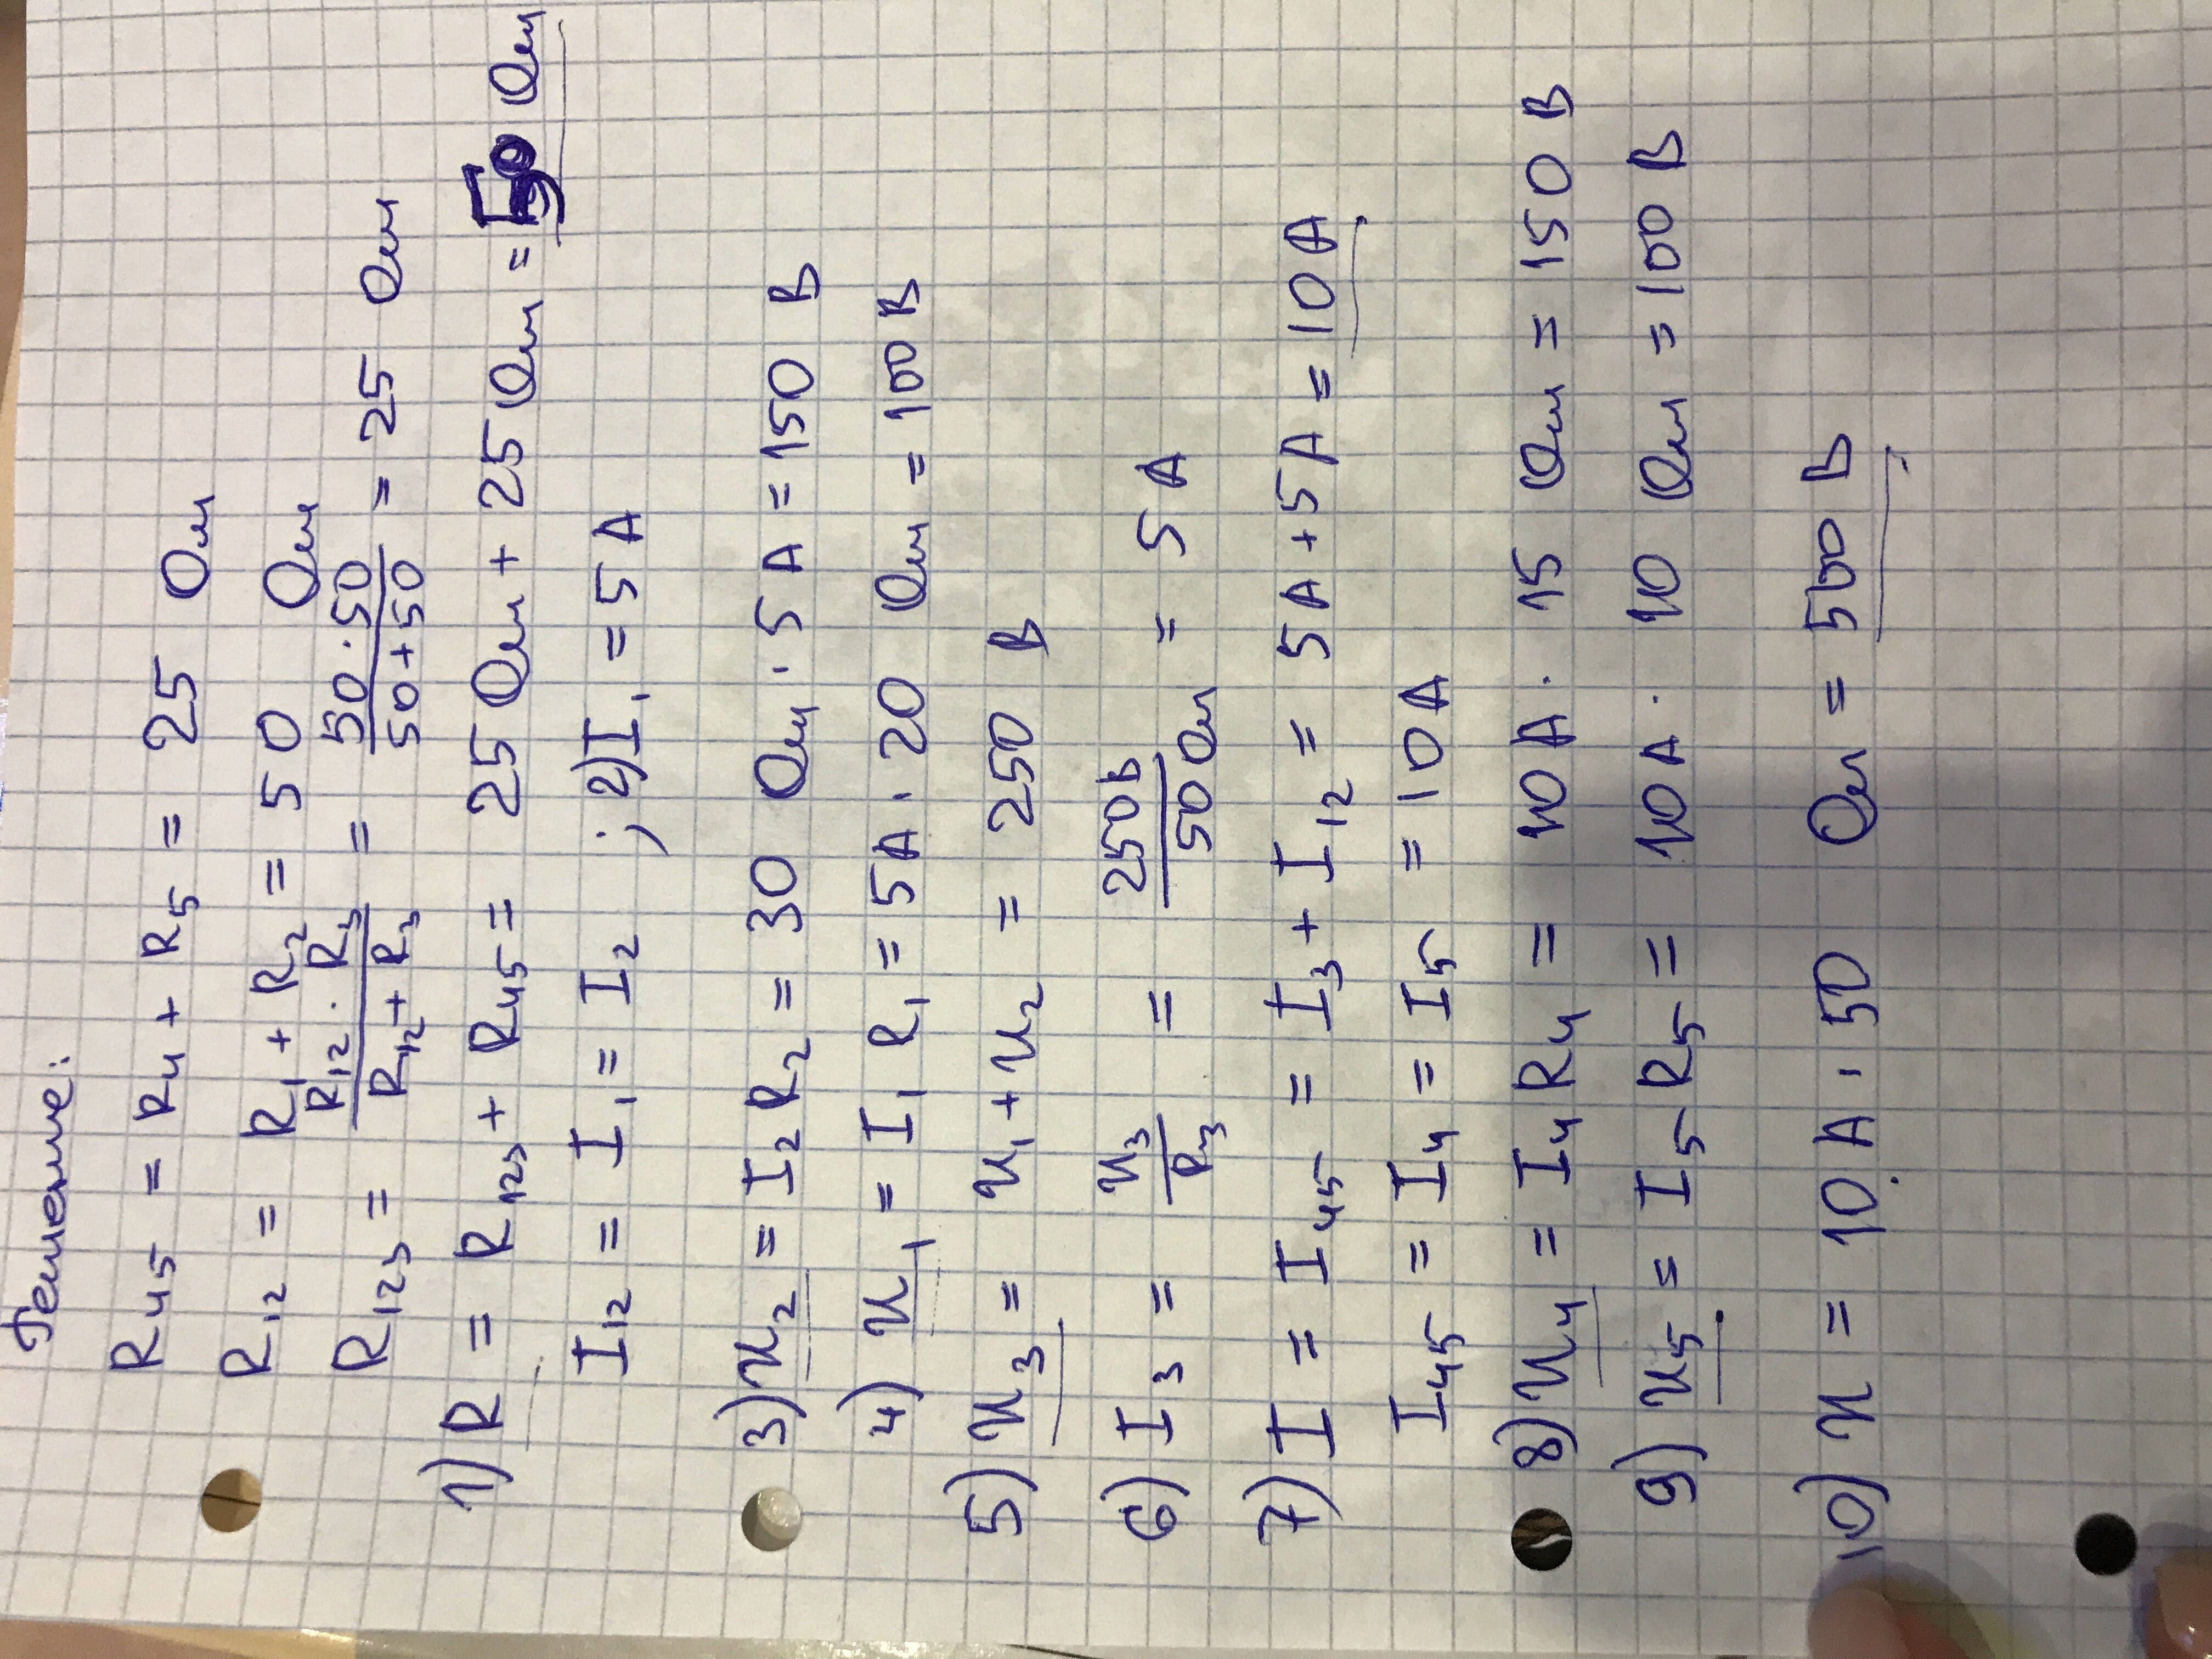 Решение:
R₄₅ = R₄ + R₅ = 25 Ом
R₁₂ = R₁ + R₂ = 50 Ом
R₁₂₃ = (R₁₂ · R₃)/(R₁₂ + R₃) = (50 · 50)/(50 + 50) = 25 Ом
1) R = R₁₂₃ + R₄₅ = 25 Ом + 25 Ом = 50 Ом
I₁₂ = I₁ = I₂ ; 2) I₁ = 5 А
3) U₂ = I₂ R₂ = 30 Ом · 5 А = 150 В
4) U₁ = I₁ R₁ = 5 А · 20 Ом = 100 В
5) U₃ = U₁ + U₂ = 250 В
6) I₃ = U₃/R₃ = 250 В/50 Ом = 5 А
7) I = I₄₅ = I₃ + I₁₂ = 5 А + 5 А = 10 А
I₄₅ = I₄ = I₅ = 10 А
8) U₄ = I₄ R₄ = 10 А · 15 Ом = 150 В
9) U₅ = I₅ R₅ = 10 А · 10 Ом = 100 В
10) U = 10 А · 50 Ом = 500 В